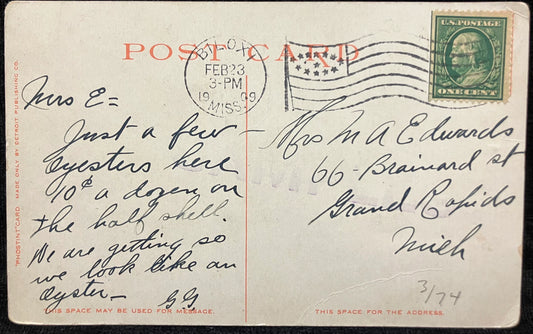 POST CARD
BILOXI
FEB 23
3-PM
1909
MISS.
U.S. POSTAGE
ONE CENT
"PHOSTINT" CARD MADE ONLY BY DETROIT PUBLISHING CO.
Mrs E=
Just a few-
oysters here
10¢ a dozen on
the half shell.
We are getting so
we look like an
oyster-
GG
THIS SPACE MAY BE USED FOR MESSAGE.
Mrs M A Edwards
66- Brainard st
Grand Rapids
Mich
3/74
THIS SPACE IS FOR THE ADDRESS.